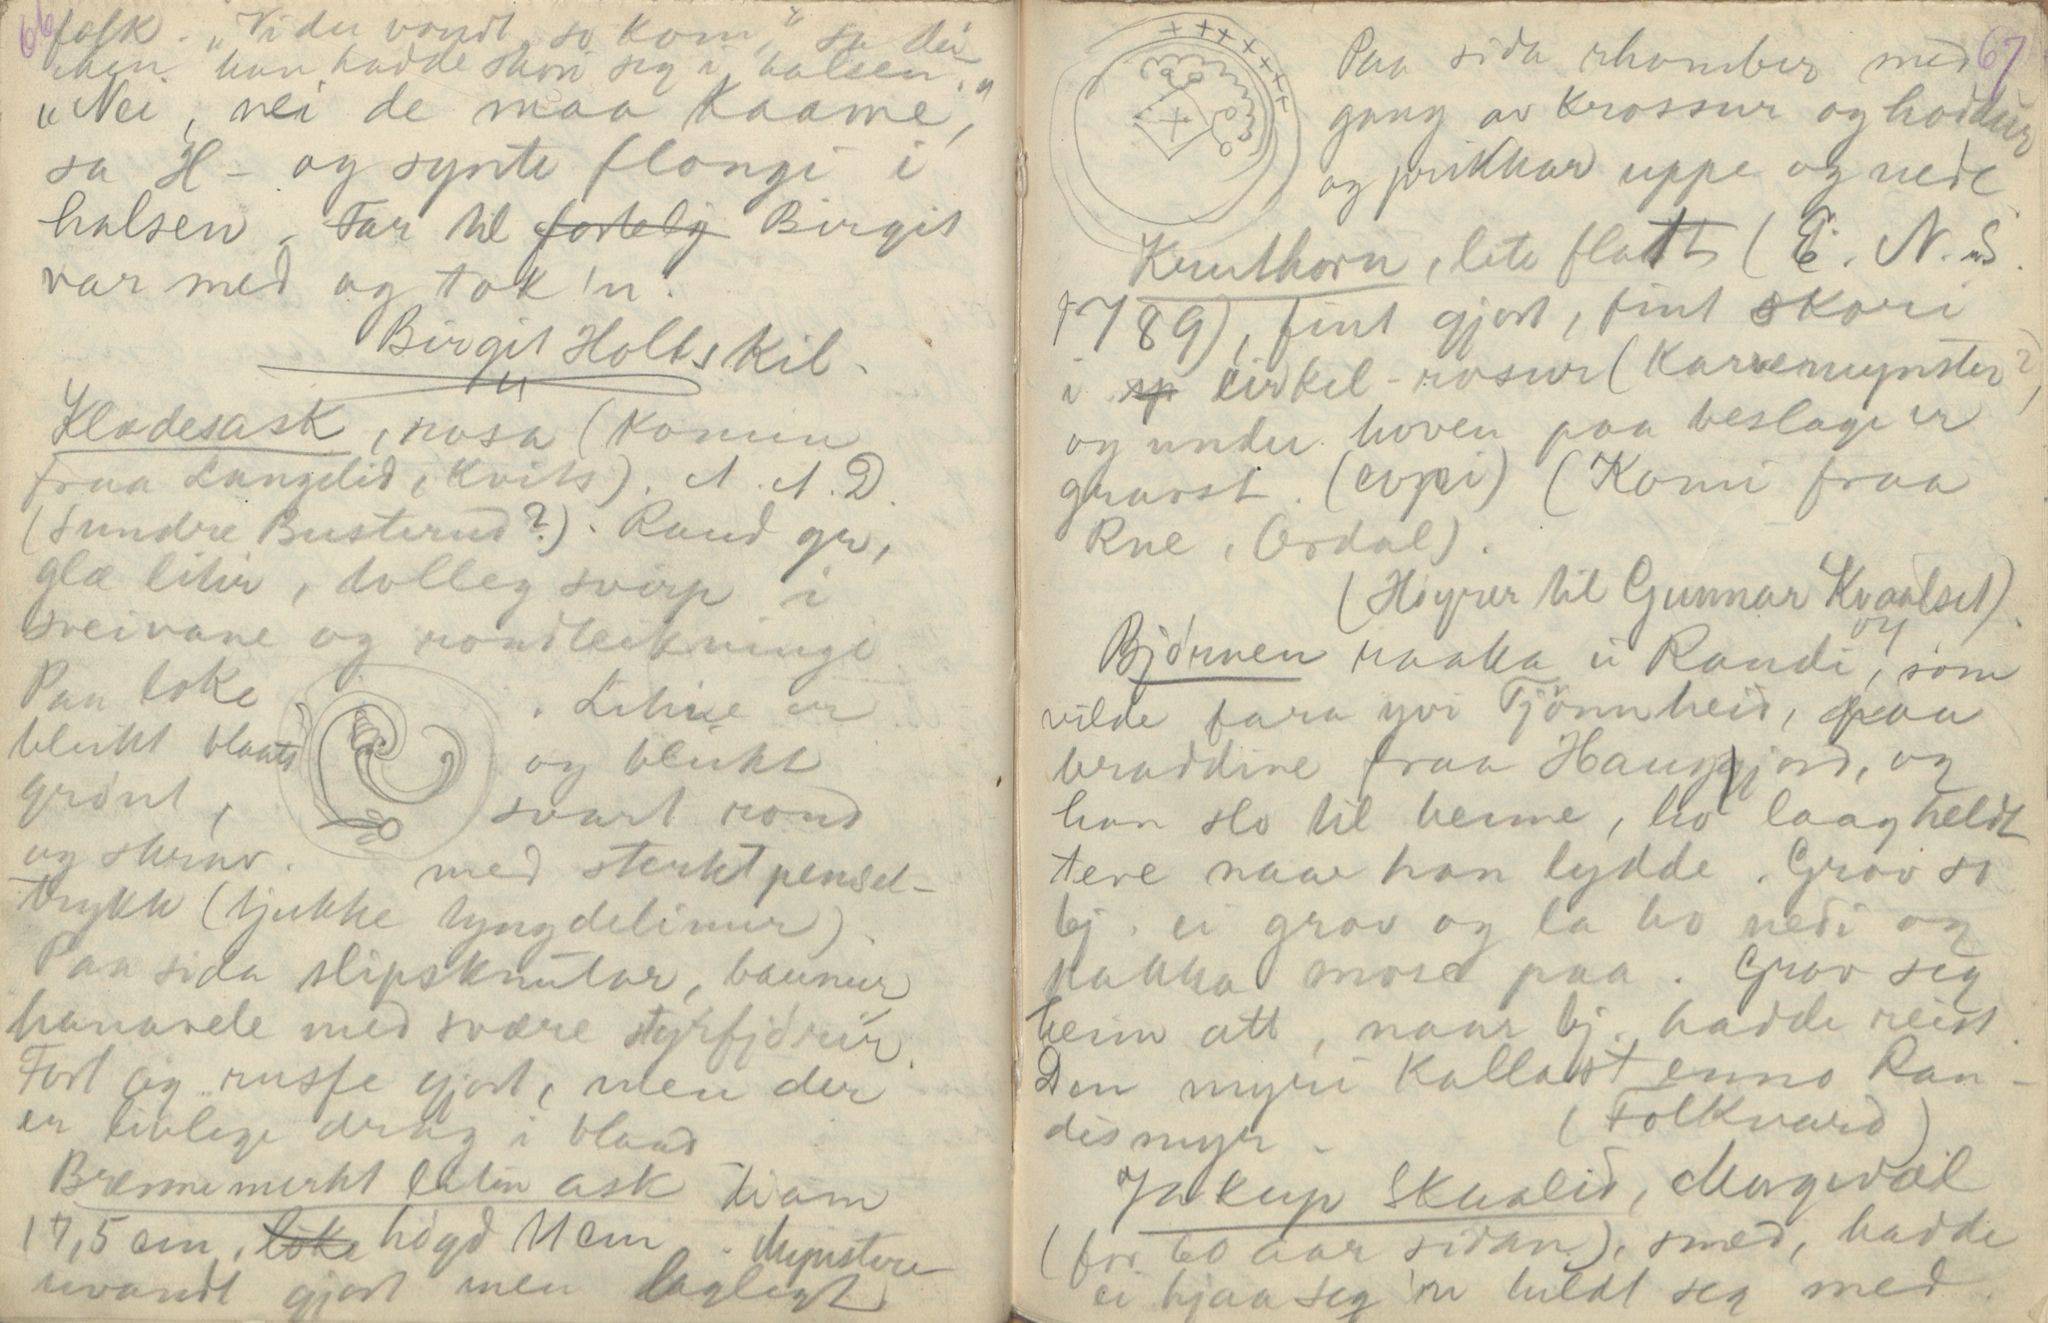 66
folk. „Vi du vondt, so kom," sa dei
men han hadde skori seg i halsen.
„Nei, nei de maa kaame,"
sa H - og synte flongi i
halsen. Far til Birgit
var med og tok 'n.
Birgit Holtskil.
Klædesask, rosa (komen
fraa Langelid, Kvits). A. A. D.
(Sundre Busterud?). Raud gr,
glæ litir, tolleg svirp i
sveivane og rondteikninge
Paa loke
bleikt blaatt
grönt,
og skrav.
. Litine er
og bleikt
svart rond
med sterkt pensel-
trykk (tjukke tyngdelinur).
Paa sida slipsknutar, baunur,
hanavele med svære styrfjörir.
Fort og ruste gjort, men der
er livlege drag i bland
Brennemerkt liten ask diam
17,5 cm, loke högd 11 cm. Mynstere
uvandt gjort men lagligt
67
Paa sida rhomber med
gang av krossur og hoddur
og prikkar uppe og nede
Kruthorn, lite flatt (E. N. S.
1789), fint gjort, fint skori
i sp cirkil-rosur (Karvemynster?)
og under hoven paa beslage er
gravst. (copi) (Komi fraa
Rue, Ordal).
(Höyrer til Gunnar Kvaalset).
Björnen raaka ei Randi, som
vilde fara yvi Tjönnheid, paa
braddine fraa Hauggjord, og
han slo til henne, ho laag heldt
teve naar han lydde. Grov so
bj. ei grov og la ho nedi og
kakka mose paa. Grov seg
heim att, naar bj. hadde reist.
Den myri kallast enno Ran-
dismyr.
(Folkvard)
Jakup Skaalid, Morgedal
(for 60 aar sidan), smed, hadde
ei hjaa seg 'n heldt seg med